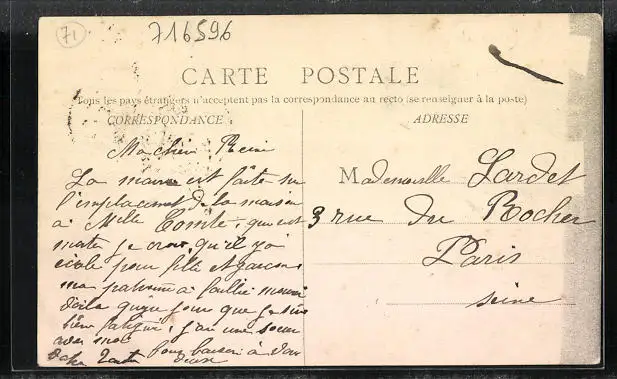 71
716596
CARTE POSTALE
Tous les pays étrangers n'acceptent pas la correspondance au recto (se renseigner à la poste)
CORRESPONDANCE
ADRESSE
Ma chère
La est faite sur
l'emplacement de la maison
à Melle Comte, que est
je crois qu'il y a
école pour fille et garçons
ma patronne a faillie mourir
voila quinze jour que je suis
bien fatigué, j'ai une soeur
avec moi
bons baiser à
Mademoiselle Lardet
3 rue du Rocher
Paris
Seine